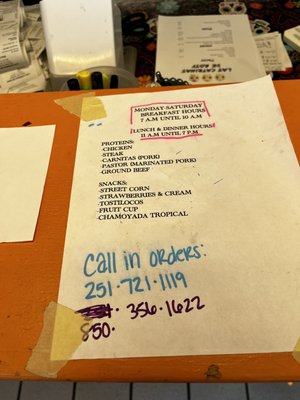 LAS CATRINAS
MONDAY-SATURDAY
BREAKFAST HOURS
7 A.M UNTIL 10 A.M
LUNCH & DINNER HOURS
11 A.M UNTIL 7 P.M
PROTEINS:
-CHICKEN
-STEAK
-CARNITAS (PORK)
-PASTOR (MARINATED PORK)
-GROUND BEEF
SNACKS:
-STREET CORN
-STRAWBERRIES & CREAM
-TOSTILOCOS
-FRUIT CUP
-CHAMOYADA TROPICAL
Call in orders:
251·721·1119
356·1622
850·